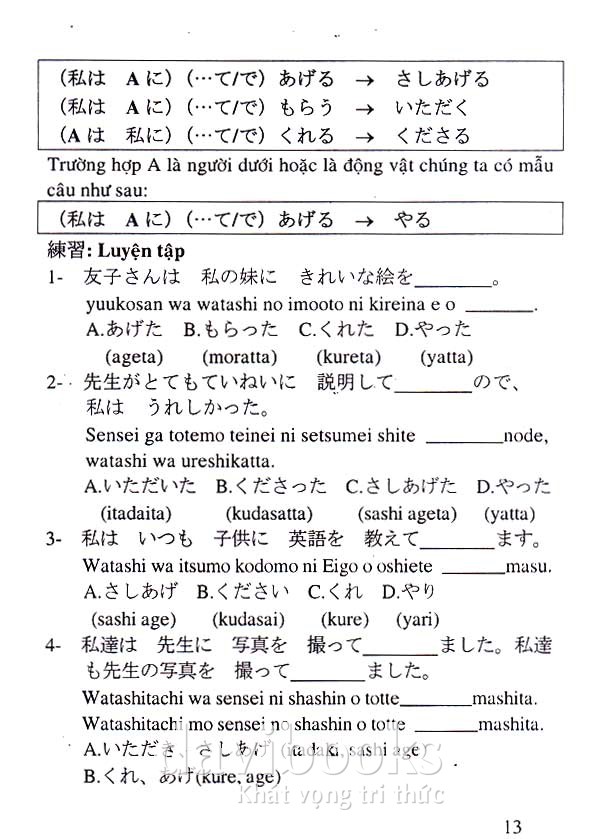 (私は Aに) (…て/で) あげる → さしあげる
(私は Aに) (…て/で) もらう → いただく
(Aは 私に) (…て/で) くれる → くださる
Trường hợp A là người dưới hoặc là động vật chúng ta có mẫu
câu như sau:
(私は Aに) (…て/で) あげる → やる
練習: Luyện tập
1- 友子さんは 私の妹に きれいな絵を________。
yuukosan wa watashi no imooto ni kireina e o ________.
A.あげた B.もらった C.くれた D.やった
(ageta) (moratta) (kureta) (yatta)
2- 先生がとてもていねいに 説明して________ので、
私は うれしかった。
Sensei ga totemo teinei ni setsumei shite ________node,
watashi wa ureshikatta.
A.いただいた B.くださった C.さしあげた D.やった
(itadaita) (kudasatta) (sashi ageta) (yatta)
3- 私は いつも 子供に 英語を 教えて________ます。
Watashi wa itsumo kodomo ni Eigo o oshiete _______masu.
A.さしあげ B.ください C.くれ D.やり
(sashi age) (kudasai) (kure) (yari)
4- 私達は 先生に 写真を 撮って________ました。私達
も先生の写真を 撮って________ました。
Watashitachi wa sensei ni shashin o totte________mashita.
Watashitachi mo sensei no shashin o totte _______mashita.
A.いただき、さしあげ (itadaki, sashi age
B.くれ、あげ(kure, age)
Khát vọng tri thức
13